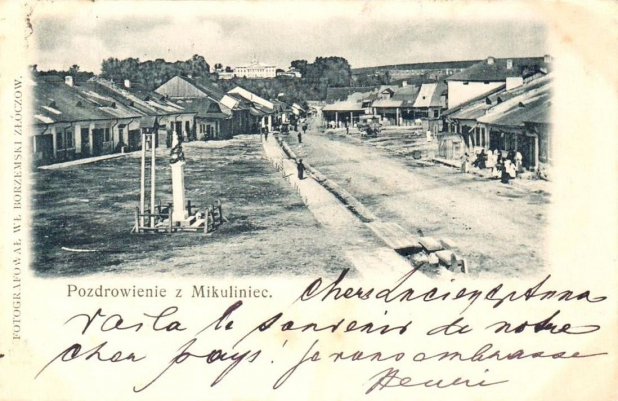 FOTOGRAFOWAŁ WŁ. BORZEMSKI ZŁOCZÓW.
Pozdrowienie z Mikuliniec.
Chers Lucien, Anna
voila le souvenir de notre
cher pays! Je vous embrasse
Henri